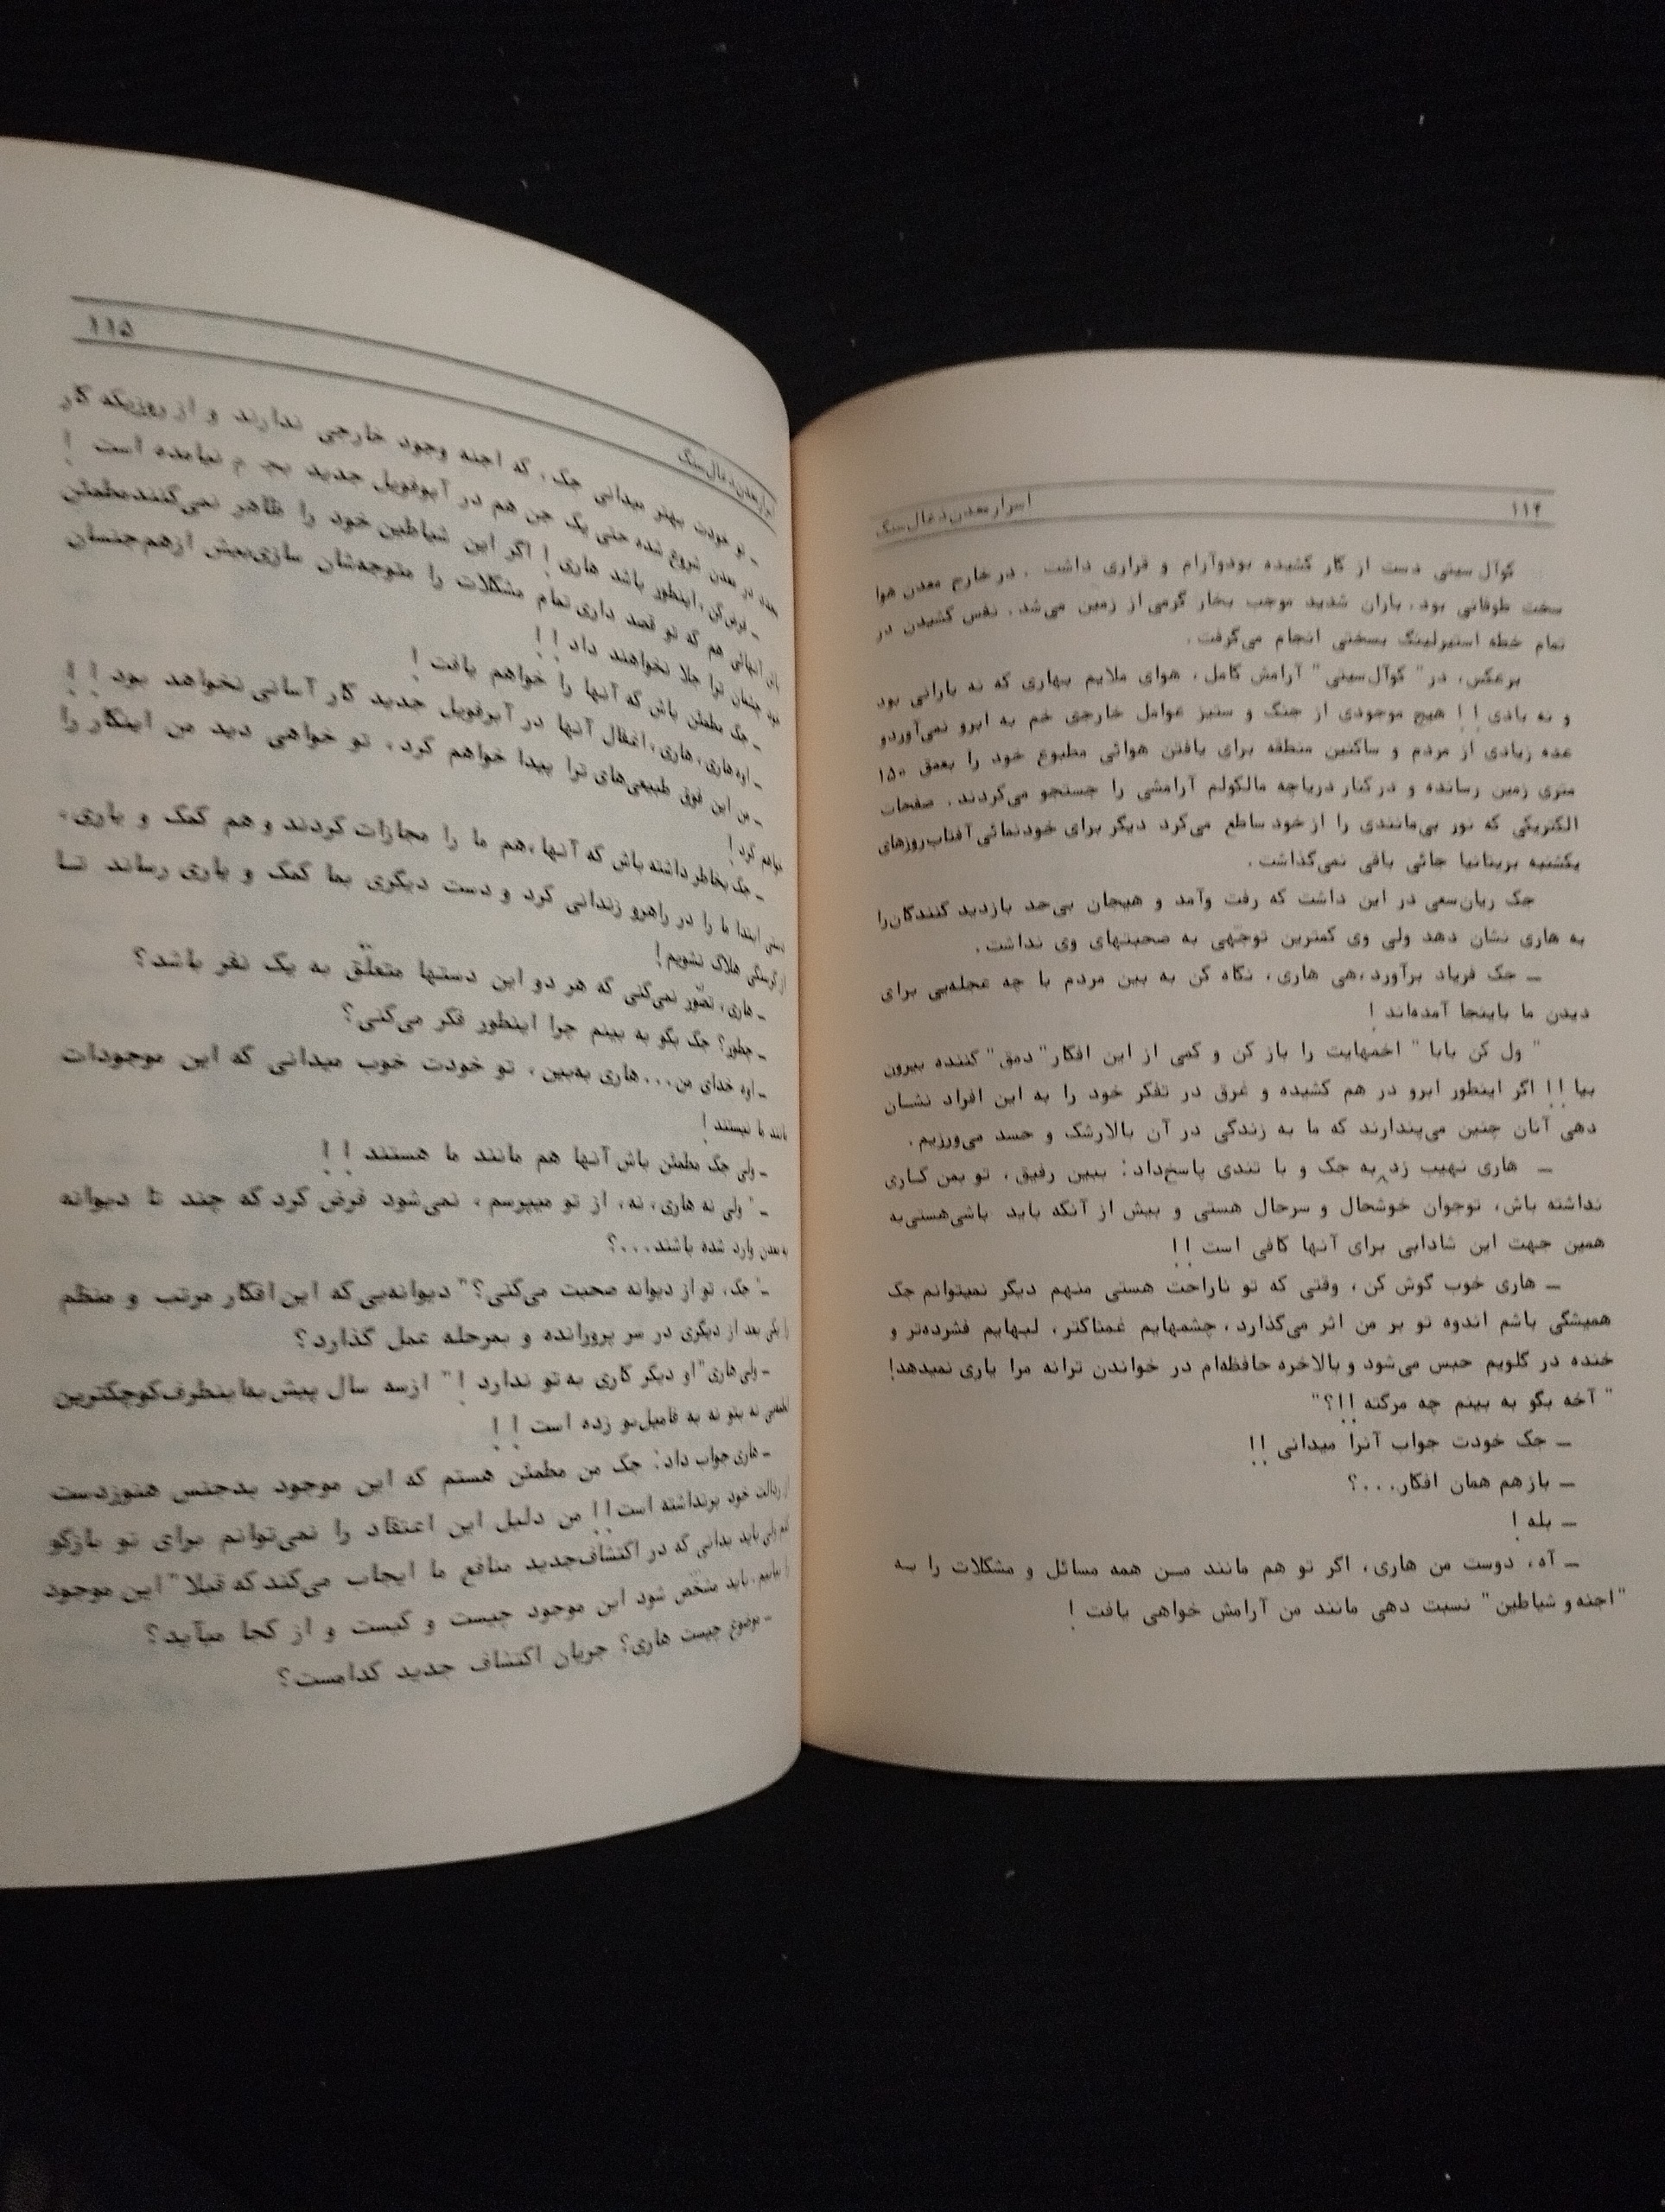 ۱۱۴
اسرار معدن ذغال سنگ
کوآل سیتی دست از کار کشیده بود و آرام و قراری داشت . در خارج معدن هوا
سخت طوفانی بود. باران شدید موجب بخار گرمی از زمین می‌شد. نفس کشیدن در
تمام خطه استیرلینگ بسختی انجام می‌گرفت.
برعکس، در " کوآل سیتی " آرامش کامل، هوای ملایم بهاری که نه بارانی بود
و نه بادی !! هیچ موجودی از جنگ و ستیز عوامل خارجی خم به ابرو نمی‌آورد و
عده زیادی از مردم و ساکنین منطقه برای یافتن هوائی مطبوع خود را بعمق ۱۵۰
متری زمین رسانده و در کنار دریاچه مالکولم آرامشی را جستجو می‌کردند. صفحات
الکتریکی که نور بی‌مانندی را از خود ساطع می‌کرد دیگر برای خودنمائی آفتاب روزهای
یکشنبه بریتانیا جائی باقی نمی‌گذاشت.
جک ریان سعی در این داشت که رفت و آمد و هیجان بی‌حد بازدید کنندگان را
به هاری نشان دهد ولی وی کمترین توجّهی به صحبتهای وی نداشت.
ـ جک فریاد برآورد، هی هاری، نگاه کن به بین مردم با چه عجله‌یی برای
دیدن ما باینجا آمده‌اند !
" ول کن بابا " اخمهایت را باز کن و کمی از این افکار "دمق" کننده بیرون
بیا !! اگر اینطور ابرو در هم کشیده و غرق در تفکر خود را به این افراد نشان
دهی آنان چنین می‌پندارند که ما به زندگی در آن بالا رشک و حسد می‌ورزیم.
ـ هاری نهیب زد به جک و با تندی پاسخ داد: ببین رفیق، تو بمن کاری
نداشته باش، توجوان خوشحال و سرحال هستی و بیش از آنکه باید باشی هستی به
همین جهت این شادابی برای آنها کافی است !!
ـ هاری خوب گوش کن، وقتی که تو ناراحت هستی منهم دیگر نمیتوانم جک
همیشگی باشم اندوه تو بر من اثر می‌گذارد، چشمهایم غمناکتر، لبهایم فشرده‌تر و
خنده در گلویم حبس می‌شود و بالاخره حافظه‌ام در خواندن ترانه مرا یاری نمیدهد!
" آخه بگو به بینم چه مرگته !!؟"
ـ جک خودت جواب آنرا میدانی !!
ـ باز هم همان افکار...؟
ـ بله !
ـ آه، دوست من هاری، اگر تو هم مانند من همه مسائل و مشکلات را به
"اجنه و شیاطین" نسبت دهی مانند من آرامش خواهی یافت !
۱۱۵
معدن ذغال سنگ
ـ تو خودت بهتر میدانی جک، که اجنه وجود خارجی ندارند و از روزیکه کار
در معدن شروع شده حتی یک جن هم در آبرفویل جدید بچ م نیامده است !
ـ فرض کن، اینطور باشد هاری ! اگر این شیاطین خود را ظاهر نمی‌کنند مطمئن
آنهائی هم که تو قصد داری تمام مشکلات را متوجه‌شان سازی بیش از هم جنسان
خود چشمان ترا جلا نخواهند داد !!
ـ جک مطمئن باش که آنها را خواهم یافت !
ـ اوه هاری، هاری، اغفال آنها در آبرفویل جدید کار آسانی نخواهد بود !!
ـ من این فوق طبیعی‌های ترا پیدا خواهم کرد، تو خواهی دید من اینکار را
خواهم کرد !
ـ جک بخاطر داشته باش که آنها، هم ما را مجازات کردند و هم کمک و یاری،
دستی ابتدا ما را در راهرو زندانی کرد و دست دیگری بما کمک و یاری رساند تا
از گرسنگی هلاک نشویم !
ـ هاری، تصّور نمی‌کنی که هر دو این دستها متعلّق به یک نفر باشد؟
ـ چطور؟ جک بگو به بینم چرا اینطور فکر می‌کنی؟
ـ اوه خدای من... هاری به‌بین، تو خودت خوب میدانی که این موجودات
مانند ما نیستند !
ـ ولی جک مطمئن باش آنها هم مانند ما هستند !!
ـ " ولی نه هاری، نه، از تو میپرسم، نمی‌شود فرض کرد که چند تا دیوانه
به معدن وارد شده باشند...؟
ـ "جک، تو از دیوانه صحبت می‌کنی؟" دیوانه‌یی که این افکار مرتب و منظم
را یکی بعد از دیگری در سر پرورانده و بمرحله عمل گذارد؟
ـ ولی هاری "او دیگر کاری به تو ندارد !" از سه سال پیش به اینطرف کوچکترین
لطمه‌یی نه بتو نه به فامیل تو زده است !!
ـ هاری جواب داد: جک من مطمئن هستم که این موجود بدجنس هنوز دست
از رذالت خود برنداشته است !! من دلیل این اعتقاد را نمی‌توانم برای تو بازگو
کنم ولی باید بدانی که در اکتشاف جدید منافع ما ایجاب می‌کند که قبلا " این موجود
را بیابیم، باید مشخّص شود این موجود چیست و کیست و از کجا میآید؟
ـ موضوع چیست هاری؟ جریان اکتشاف جدید کدامست؟